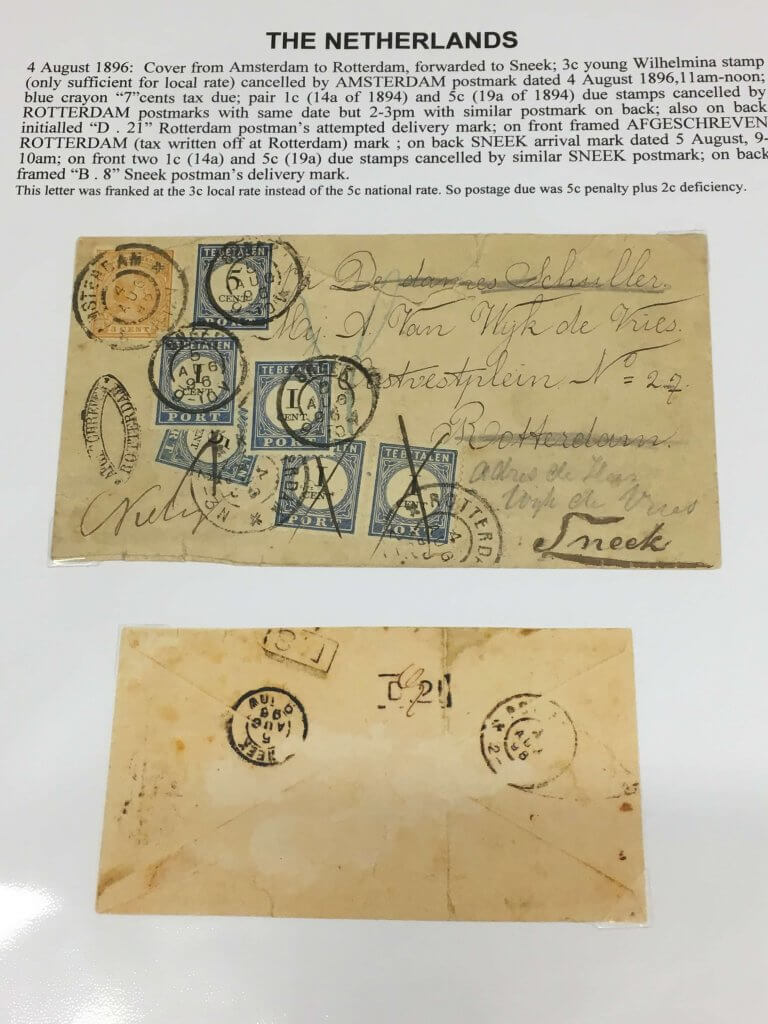 THE NETHERLANDS
4 August 1896: Cover from Amsterdam to Rotterdam, forwarded to Sneek; 3c young Wilhelmina stamp
(only sufficient for local rate) cancelled by AMSTERDAM postmark dated 4 August 1896,11am-noon;
blue crayon “7”cents tax due; pair 1c (14a of 1894) and 5c (19a of 1894) due stamps cancelled by
ROTTERDAM postmarks with same date but 2-3pm with similar postmark on back; also on back
initialled “D . 21” Rotterdam postman's attempted delivery mark; on front framed AFGESCHREVEN
ROTTERDAM (tax written off at Rotterdam) mark ; on back SNEEK arrival mark dated 5 August, 9-
10am; on front two 1c (14a) and 5c (19a) due stamps cancelled by similar SNEEK postmark; on back
framed “B . 8” Sneek postman's delivery mark.
This letter was franked at the 3c local rate instead of the 5c national rate. So postage due was 5c penalty plus 2c deficiency.
AMSTERDAM
4
CENT
TE BETALEN
5
CENT
PORT
De dames Schuller.
Mej A. Van Wijk de Vries.
Oostvestplein No = 27.
Rotterdam.
Adres de Heer
Wijk de Vries
Sneek
5
96
9-10V
1
CENT
PORT
TE BETALEN
1
CENT
PORT
9-10V
ROTTERDAM
CENT
TE BETALEN
1
CENT
PORT
TE BETALEN
CENT
PORT
ROTTERD
4
D 2
5
AUG
96